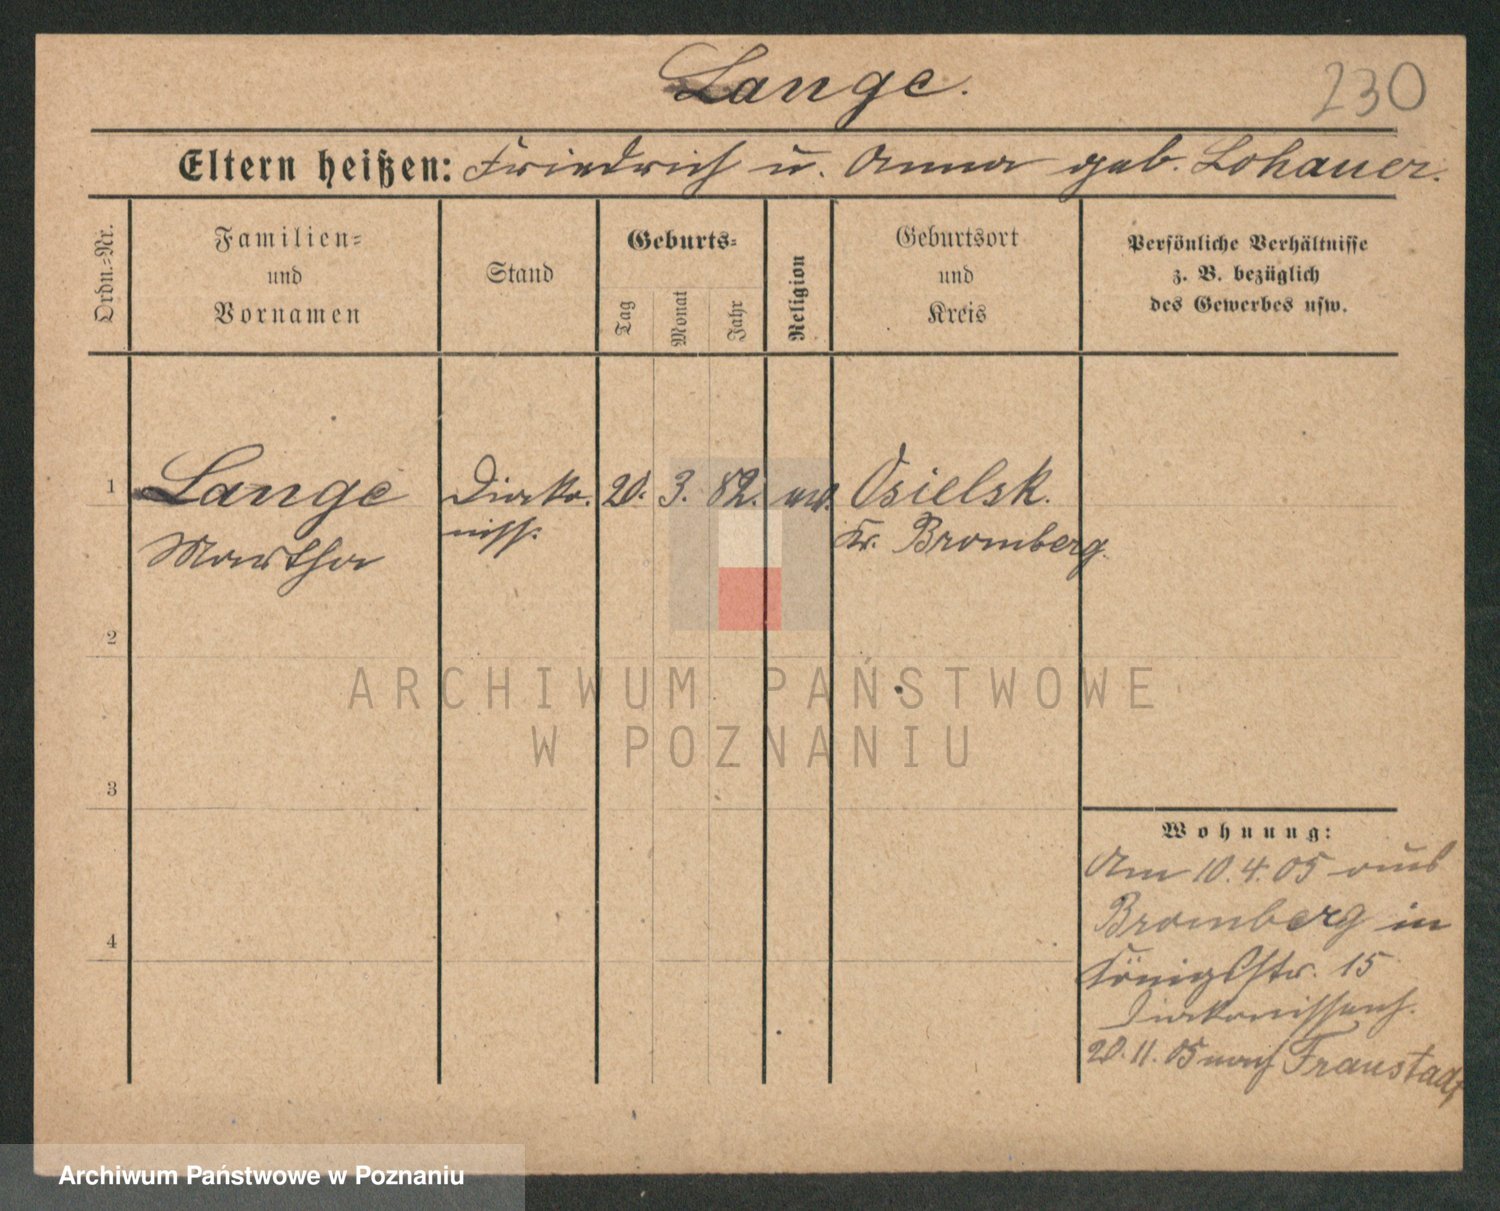 Lange.
230
Eltern heißen: Friedrich u. Anna geb. Lohauer.
Ordn.-Nr.
Familien-
und
Vornamen
Stand
Geburts-
Tag
Monat
Jahr
Religion
Geburtsort
und
Kreis
Persönliche Verhältnisse
z. B. bezüglich
des Gewerbes usw.
1 Lange Diako- 20. 3. 82. ev. Osielsk.
Martha niss. Kr. Bromberg.
2
3
4
Wohnung:
Am 10.4.05 aus
Bromberg in
Königsstr. 15
Diakonissenh.
20.11.05 nach Fraustadt
ARCHIWUM PAŃSTWOWE
W POZNANIU
Archiwum Państwowe w Poznaniu